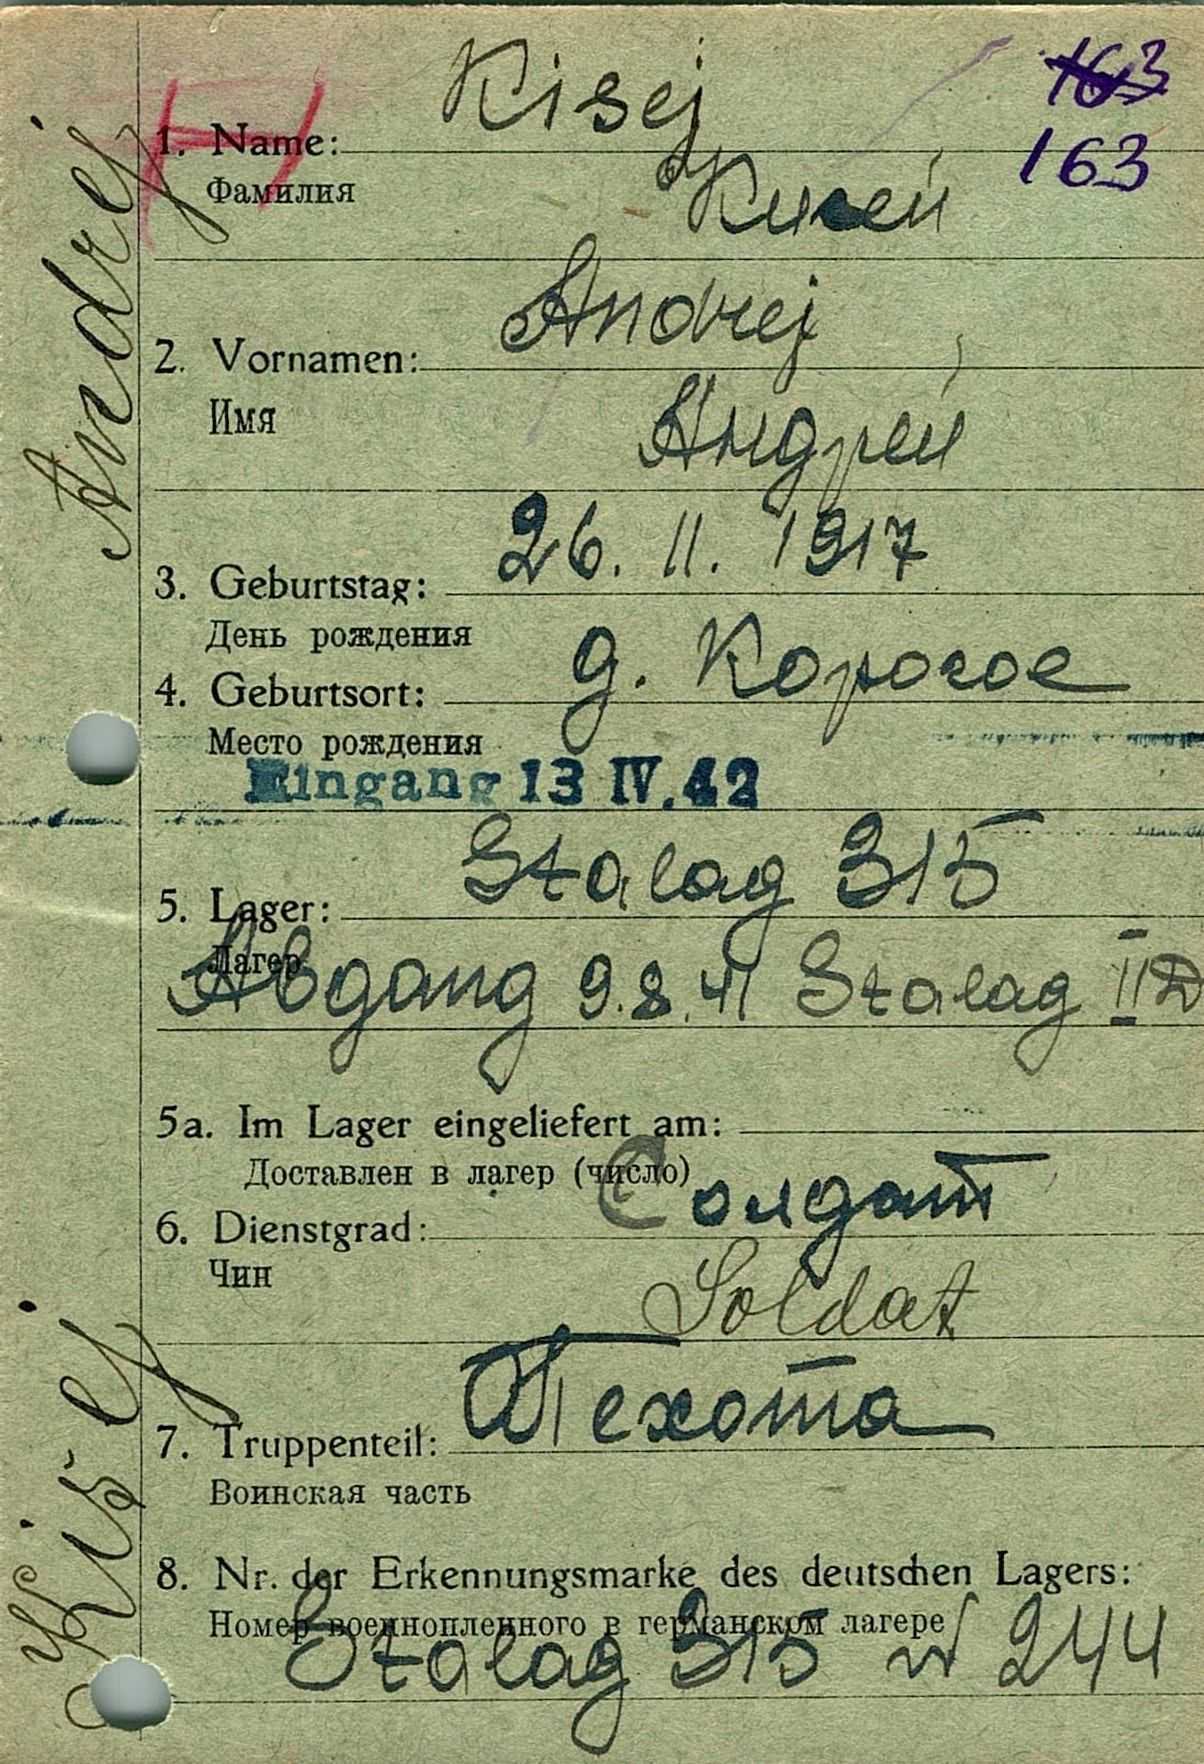 163
163
Kisej
1. Name:
Фамилия
Кисей
Andrej
2. Vornamen:
Имя
Андрей
26. 11. 1917
3. Geburtstag:
День рождения
д. Корогое
4. Geburtsort:
Место рождения
Eingang 13 IV. 42
Stalag 315
5. Lager:
Лагер
Abgang 9.8.41 Stalag II D
5a. Im Lager eingeliefert am:
Доставлен в лагер (число)
Солдат
6. Dienstgrad:
Чин
Soldat
Пехота
7. Truppenteil:
Воинская часть
8. Nr. der Erkennungsmarke des deutschen Lagers:
Номер военнопленного в германском лагере
Stalag 315 N 244
Kisej Andrej